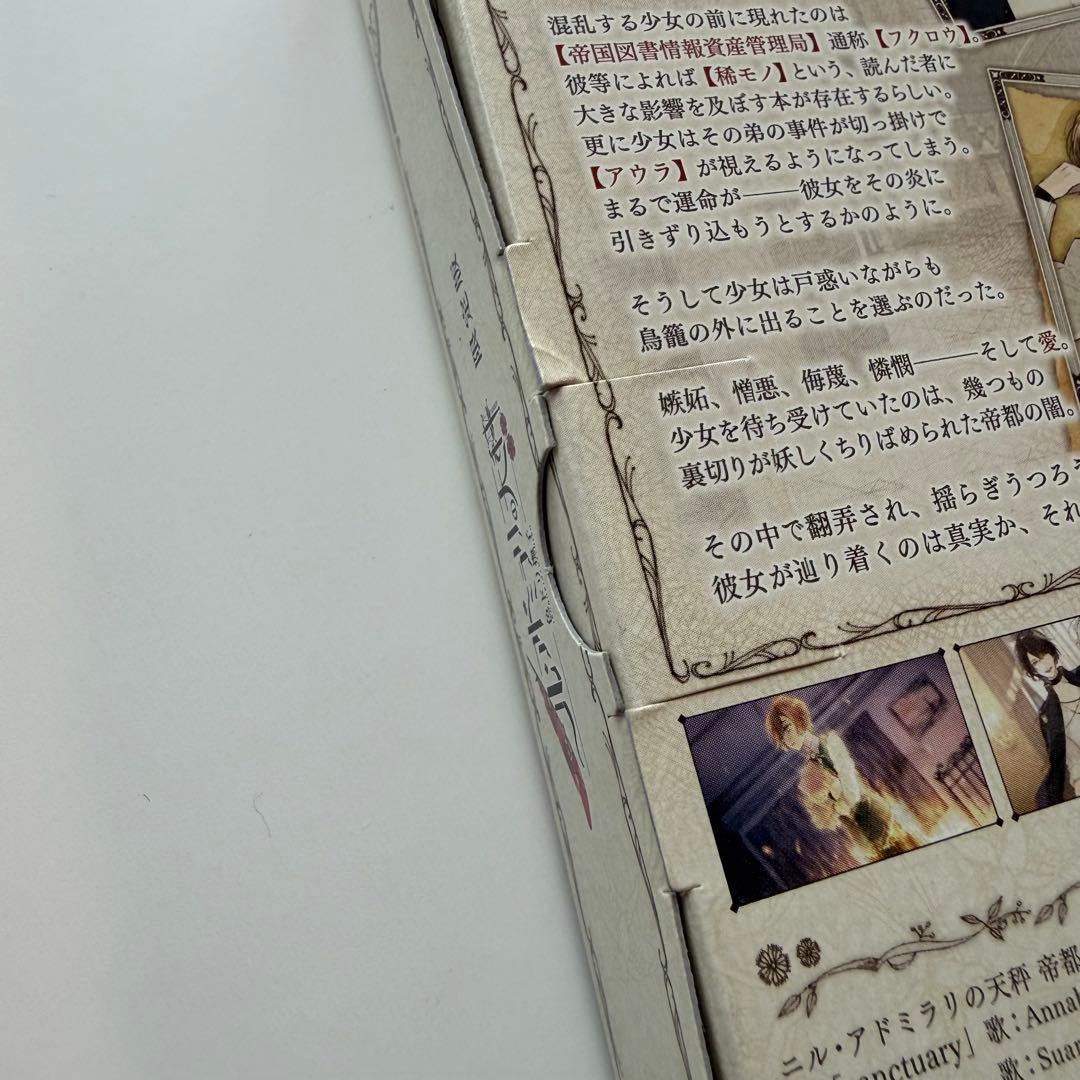 混乱する少女の前に現れたのは
【帝国図書情報資産管理局】通称【フクロウ】。
彼等によれば【稀モノ】という、読んだ者に
大きな影響を及ぼす本が存在するらしい。
更に少女はその弟の事件が切っ掛けで
【アウラ】が視えるようになってしまう。
まるで運命が――彼女をその炎に
引きずり込もうとするかのように。
そうして少女は戸惑いながらも
鳥籠の外に出ることを選ぶのだった。
嫉妬、憎悪、侮蔑、憐憫――そして愛。
少女を待ち受けていたのは、幾つもの
裏切りが妖しくちりばめられた帝都の闇。
その中で翻弄され、揺らぎうつろう
彼女が辿り着くのは真実か、それ
ニル・アドミラリの天秤 帝都
anctuary」 歌：Annab
歌：Suar